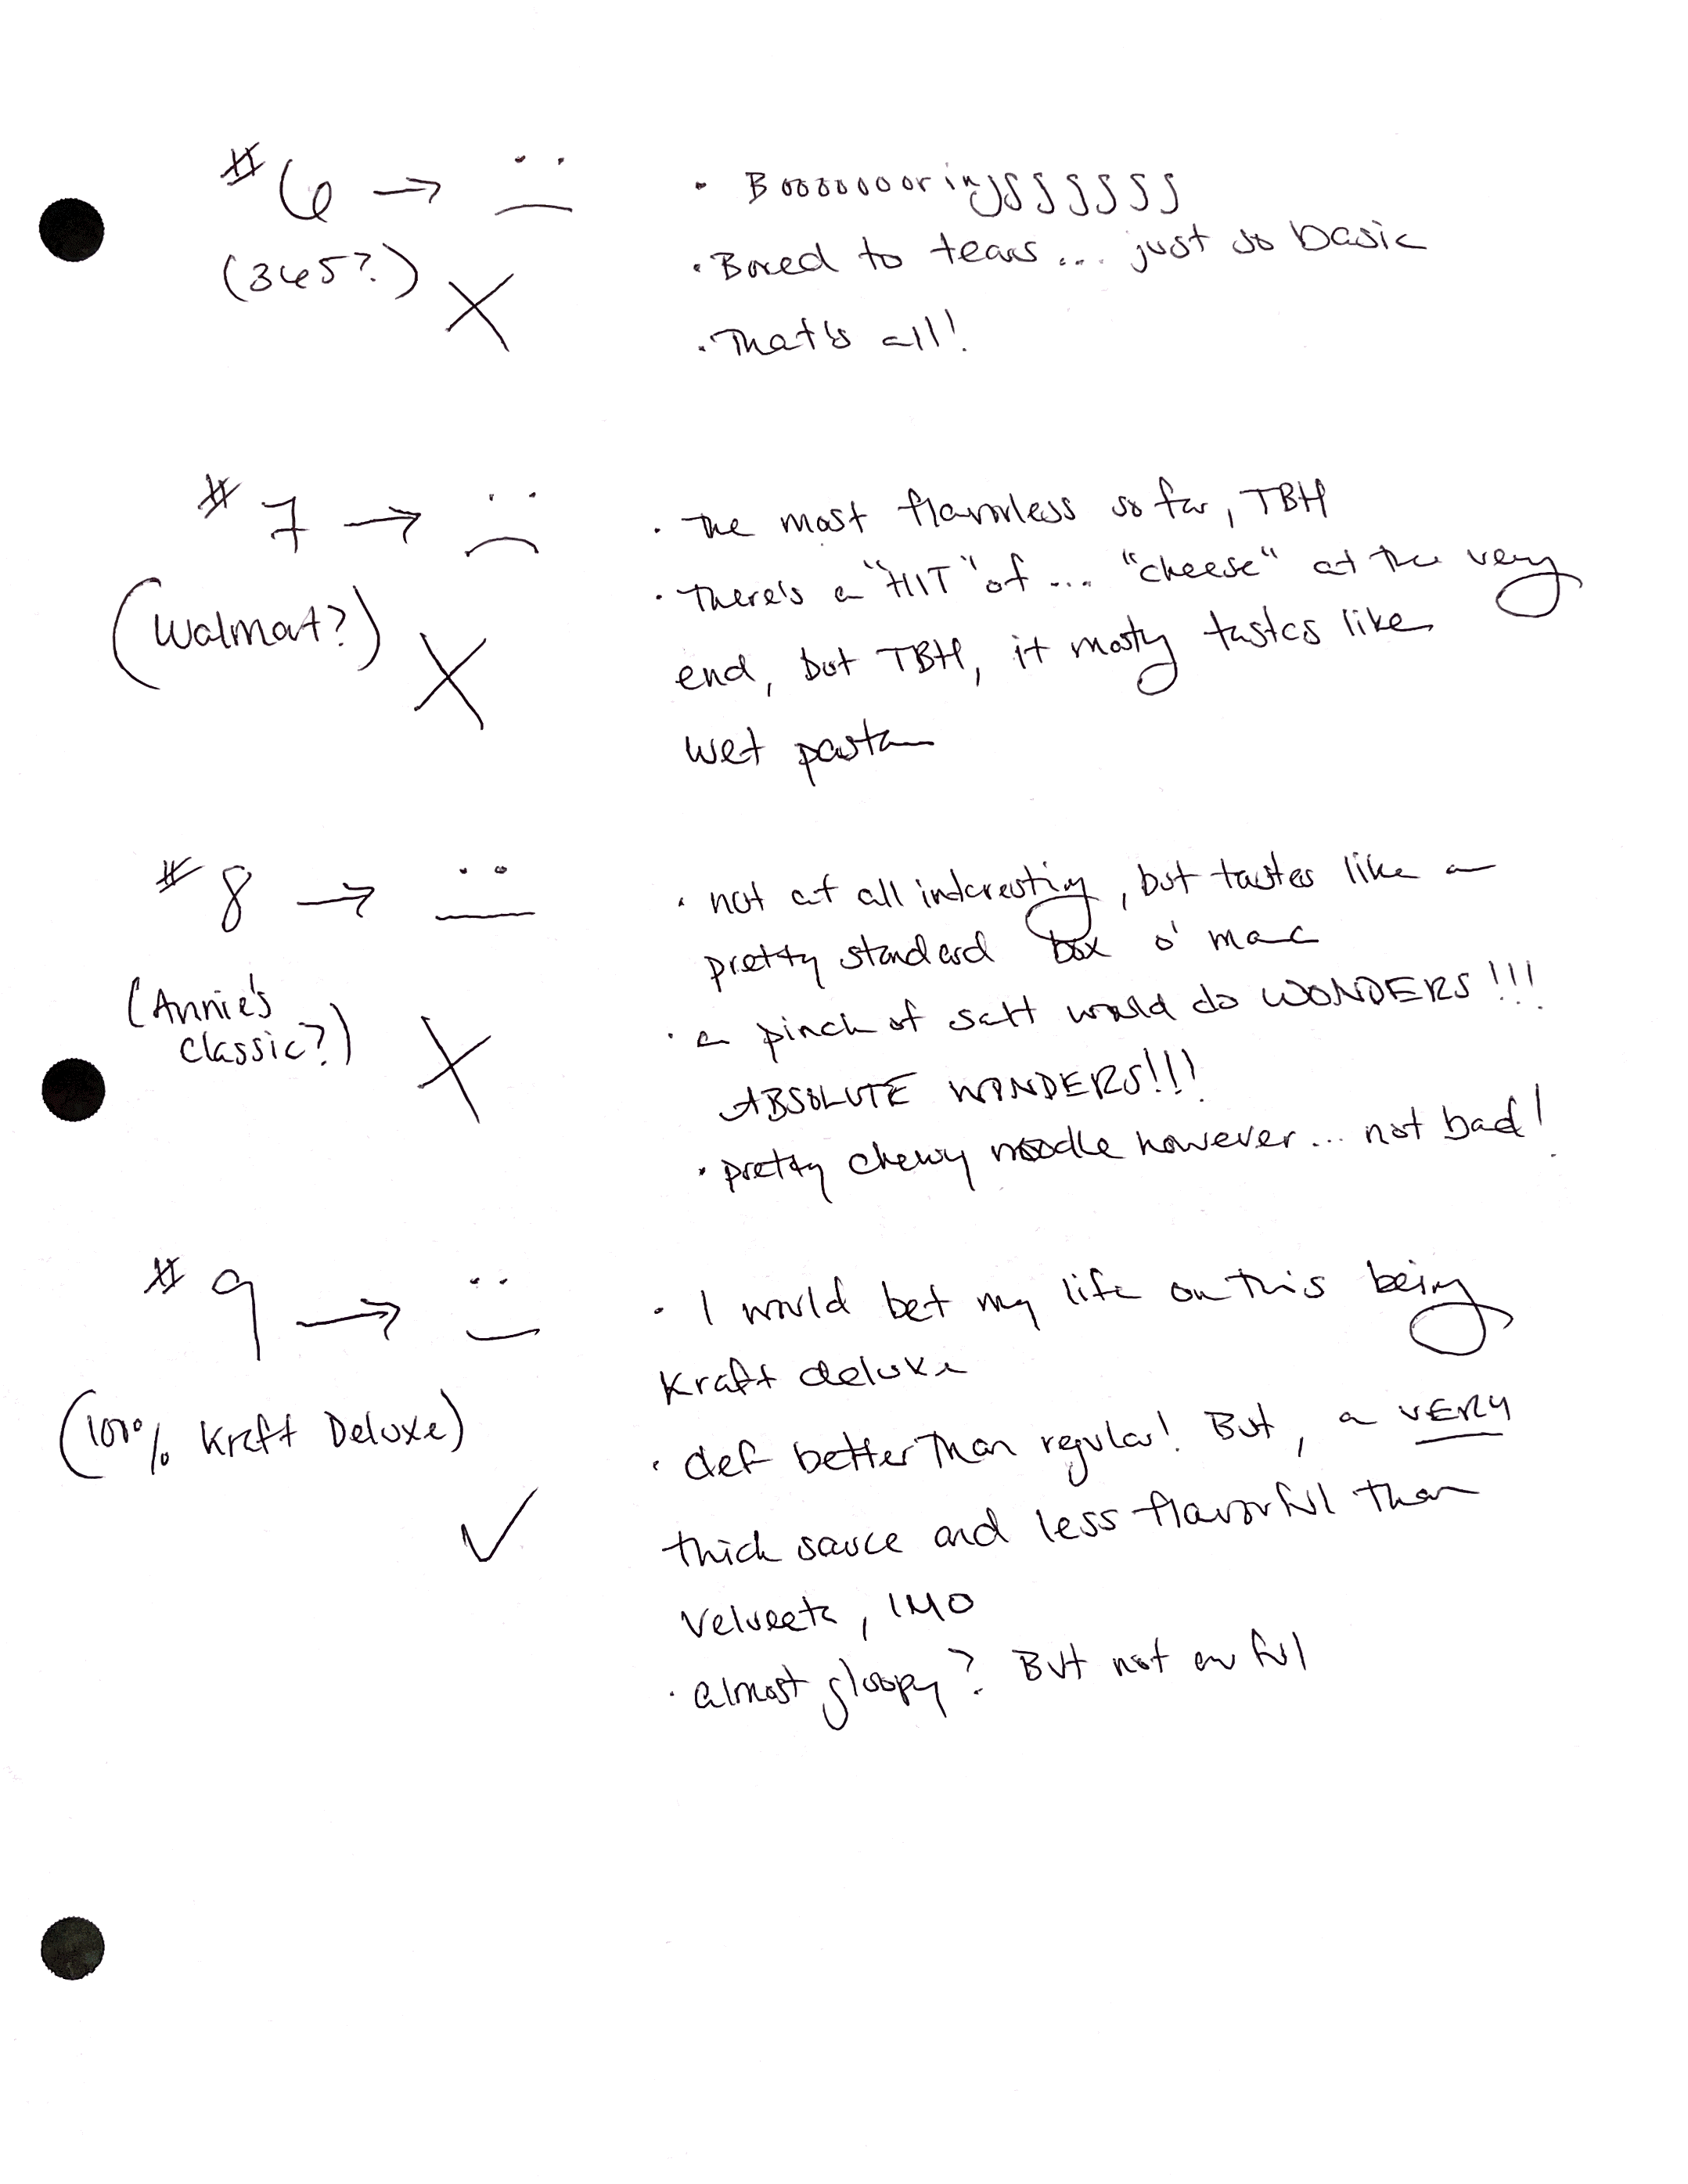 #6 →
• Booooooooringggggggg
(365?) X
• Bored to tears ... just so basic
• That's all!
#7 →
• The most flavorless so far, TBH
(Walmart?) X
• There's a "HIT" of ... "cheese" at the very
end, but TBH, it mosty tastes like
wet pasta
#8 →
• not at all interesting, but tastes like a
pretty standard box o' mac
(Annie's
classic?) X
• a pinch of salt would do WONDERS!!!
ABSOLUTE WONDERS!!!
• pretty chewy noodle however... not bad!
#9 →
• I would bet my life on this being
Kraft deluxe
(100% Kraft Deluxe) ✓
• def better than regular! But, a VERY
thick sauce and less flavorful than
Velveeta, IMO
• almost gloopy? But not awful